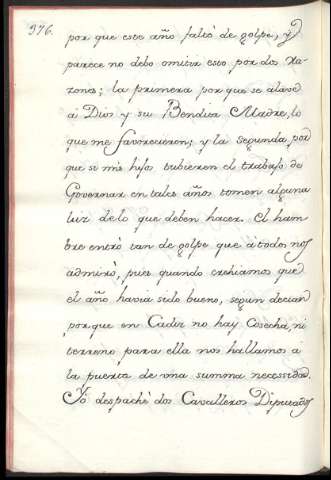 376.
por que este año faltò de golpe, y
parece no debo omitir esto por dos ra-
zones; la primera por que se alave
á Dios y su Bendita Madre, lo
que me favorecieron; y la segunda por
que si mis hijos tubieren el trabajo de
Governar en tales años tomen alguna
luz delo que deben hacer. El ham
bre entrò tan de golpe que á todos nos
admirò, pues quando crehiamos que
el año havia sido bueno, segun decian
porque en Cadiz no hay Cosecha, ni
terreno para ella nos hallamos á
la puerta de una summa necessidad.
Yó despaché dos Cavalleros Diputados